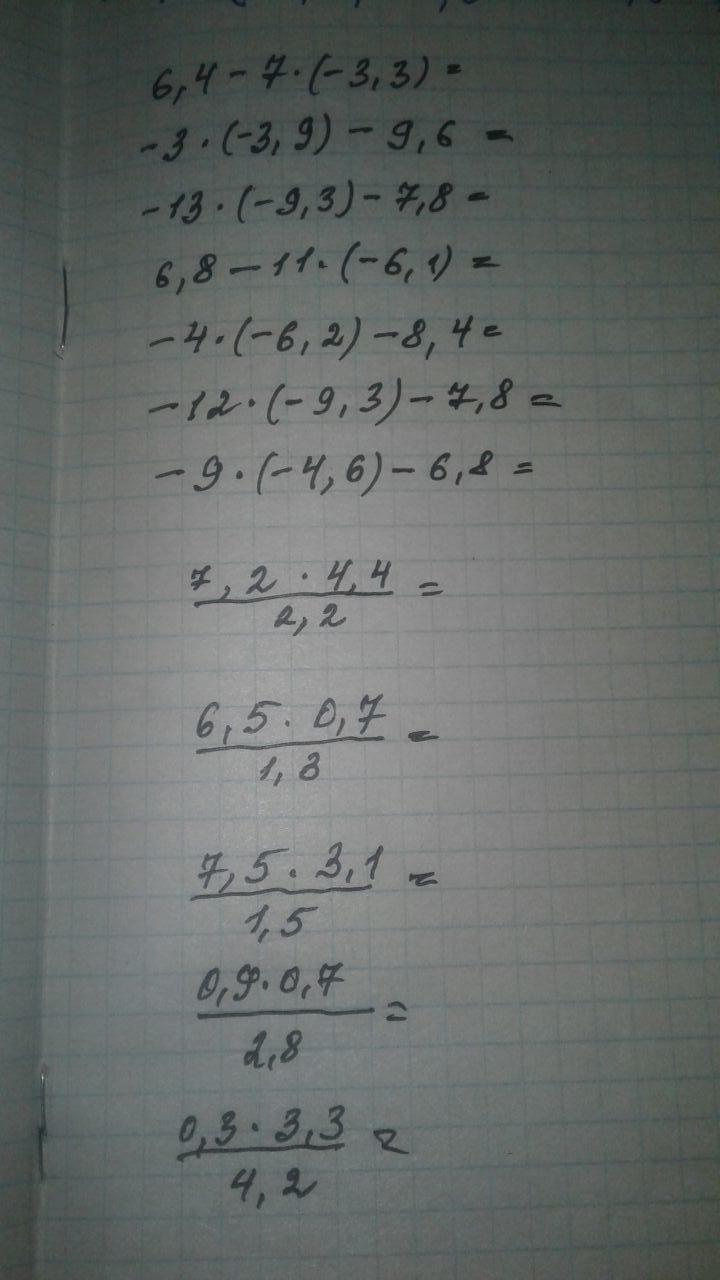 6,4 - 7 · (-3,3) =
-3 · (-3,9) - 9,6 =
-13 · (-9,3) - 7,8 =
6,8 - 11 · (-6,1) =
-4 · (-6,2) - 8,4 =
-12 · (-9,3) - 7,8 =
-9 · (-4,6) - 6,8 =
7,2 · 4,4 =
2,2
6,5 · 0,7 =
1,3
7,5 · 3,1 =
1,5
0,9 · 0,7 =
2,8
0,3 · 3,3 =
4,2